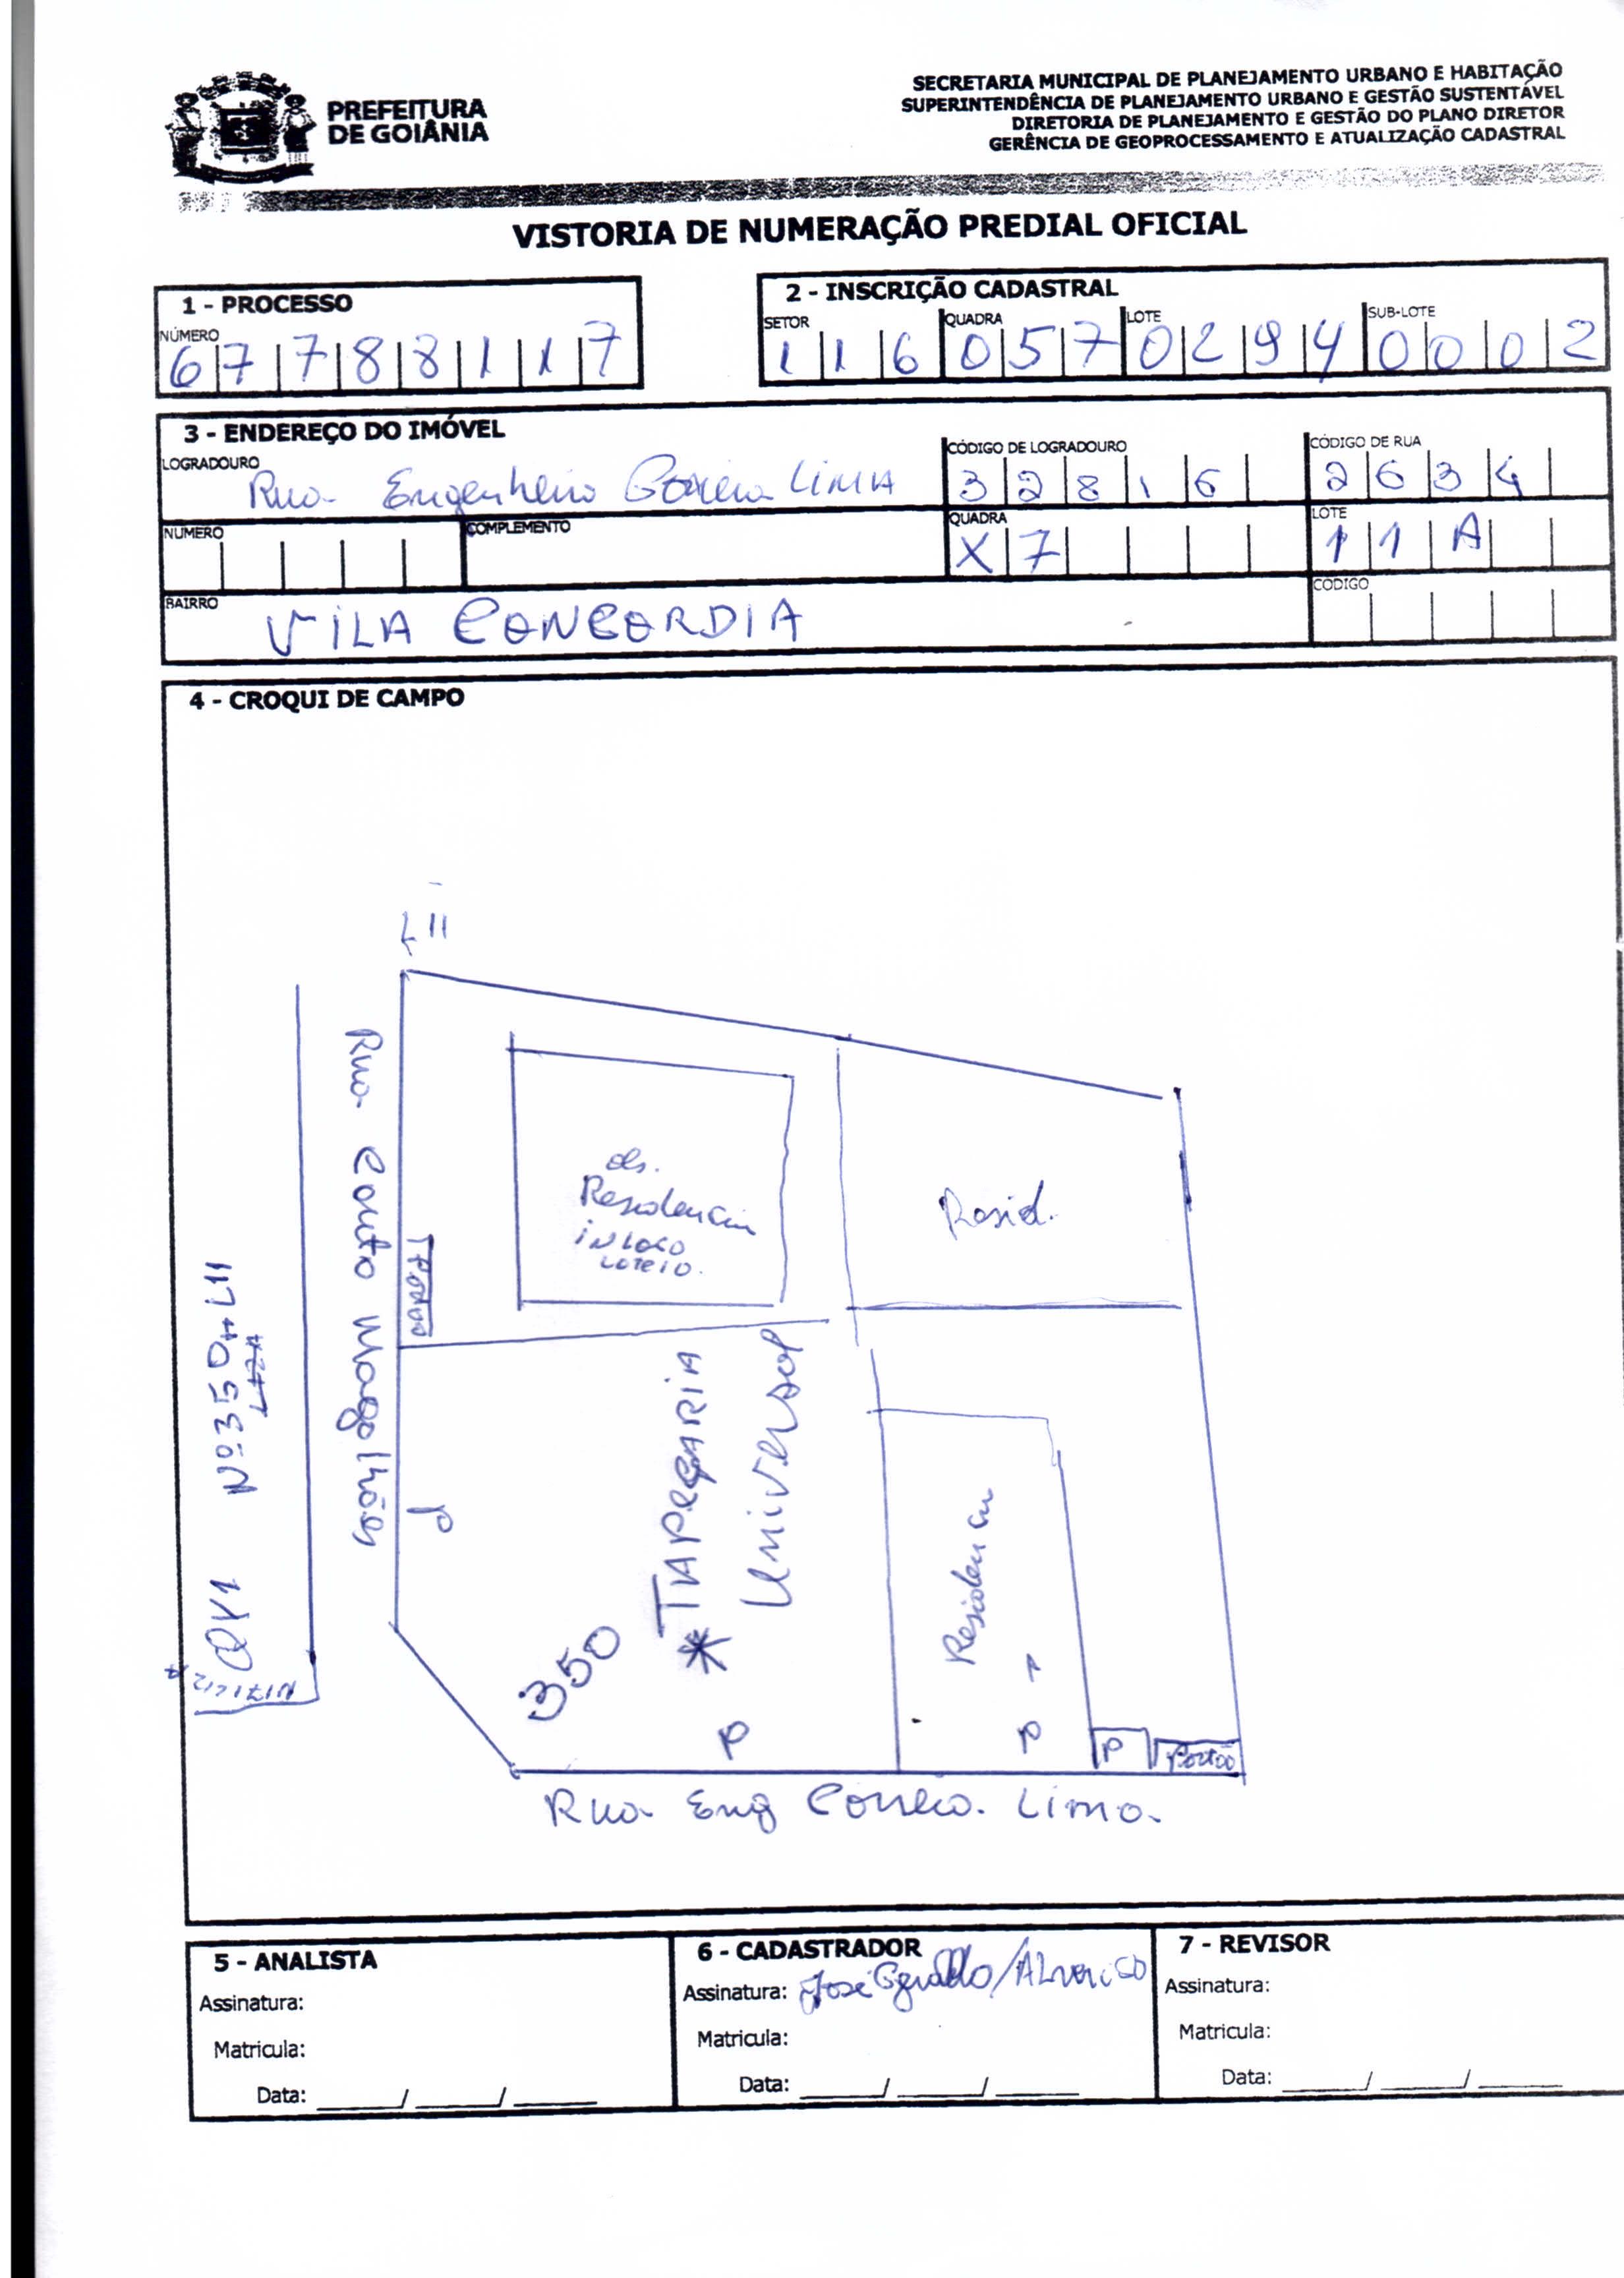 PREFEITURA
DE GOIÂNIA
SECRETARIA MUNICIPAL DE PLANEJAMENTO URBANO E HABITAÇÃO
SUPERINTENDÊNCIA DE PLANEJAMENTO URBANO E GESTÃO SUSTENTÁVEL
DIRETORIA DE PLANEJAMENTO E GESTÃO DO PLANO DIRETOR
GERÊNCIA DE GEOPROCESSAMENTO E ATUALIZAÇÃO CADASTRAL
VISTORIA DE NUMERAÇÃO PREDIAL OFICIAL
1 - PROCESSO
NÚMERO
6 7 7 8 8 1 1 7
2 - INSCRIÇÃO CADASTRAL
SETOR QUADRA LOTE SUB-LOTE
1 1 6 0 5 7 0 2 9 4 0 0 0 2
3 - ENDEREÇO DO IMÓVEL
LOGRADOURO CÓDIGO DE LOGRADOURO CÓDIGO DE RUA
Rua Engenheiro Correia LIMA 3 2 8 1 6 2 6 3 4
NUMERO COMPLEMENTO QUADRA LOTE
X 7 1 1 A
BAIRRO CODIGO
VILA CONCORDIA
4 - CROQUI DE CAMPO
L 11
Rua Couto Magalhões
Nº 350 L11
Residencia
IN LOCO
LOTEIO.
Resid.
TAPEÇARIA
Universal
350
P
Residencia
P
P
Portão
Rua Eng Correa. Lima.
5 - ANALISTA
Assinatura:
Matricula:
Data: ____/____/____
6 - CADASTRADOR
Assinatura: José Geraldo/
Matricula:
Data: ____/____/____
7 - REVISOR
Assinatura:
Matricula:
Data: ____/____/____